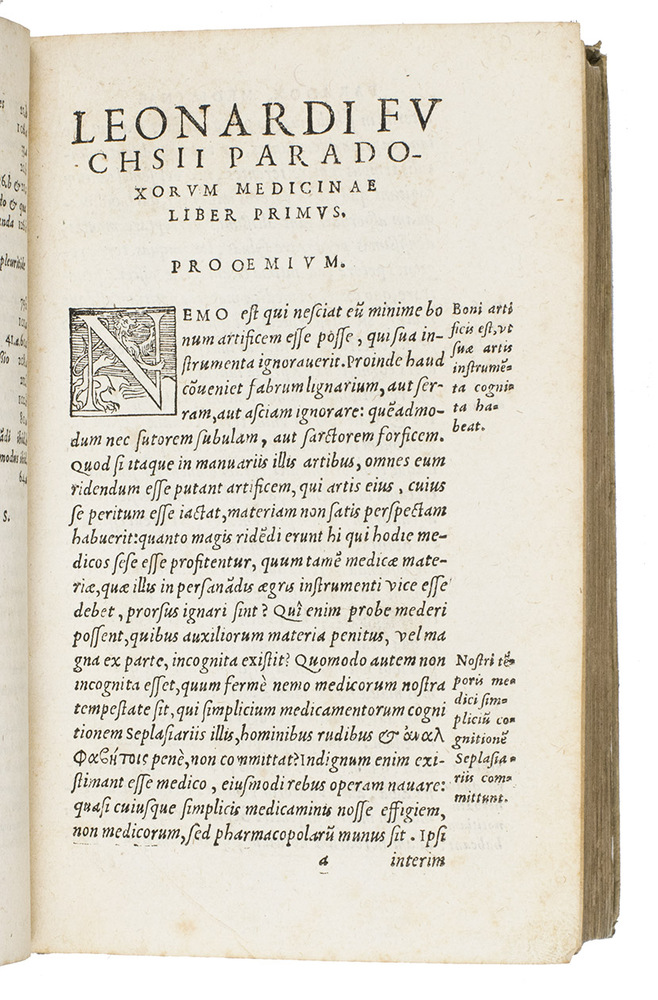 LEONARDI FV
CHSII PARADO-
XORVM MEDICINAE
LIBER PRIMVS.
PROOEMIVM.
NEMO est qui nesciat eũ minime bo
num artificem esse posse, qui sua in-
strumenta ignorauerit. Proinde haud
cõueniet fabrum lignarium, aut ser-
ram, aut asciam ignorare: quẽadmo-
dum nec sutorem subulam, aut sarctorem forficem.
Quod si itaque in manuariis illis artibus, omnes eum
ridendum esse putant artificem, qui artis eius, cuius
se peritum esse iactat, materiam non satis perspectam
habuerit: quanto magis ridẽdi erunt hi qui hodie me-
dicos sese esse profitentur, quum tamẽ medicæ mate-
riæ, quæ illis in persanãdis ægris instrumenti vice esse
debet, prorsus ignari sint? Quî enim probe mederi
possent, quibus auxiliorum materia penitus, vel ma
gna ex parte, incognita existit? Quomodo autem non
incognita esset, quum fermè nemo medicorum nostra
tempestate sit, qui simplicium medicamentorum cogni
tionem Seplasiariis illis, hominibus rudibus & ἀναλ
φαβήτοις penè, non committat? Indignum enim exi-
stimant esse medico, eiusmodi rebus operam nauare:
quasi cuiusque simplicis medicaminis nosse effigiem,
non medicorum, sed pharmacopolarũ munus sit. Ipsi
a interim
Boni arti
ficis est, vt
suæ artis
instrumẽ=
ta cogni=
ta ha=
beat.
Nostri tẽ=
poris me=
dici sim=
pliciũ co=
gnitionẽ
Seplasia=
riis com=
mittunt.